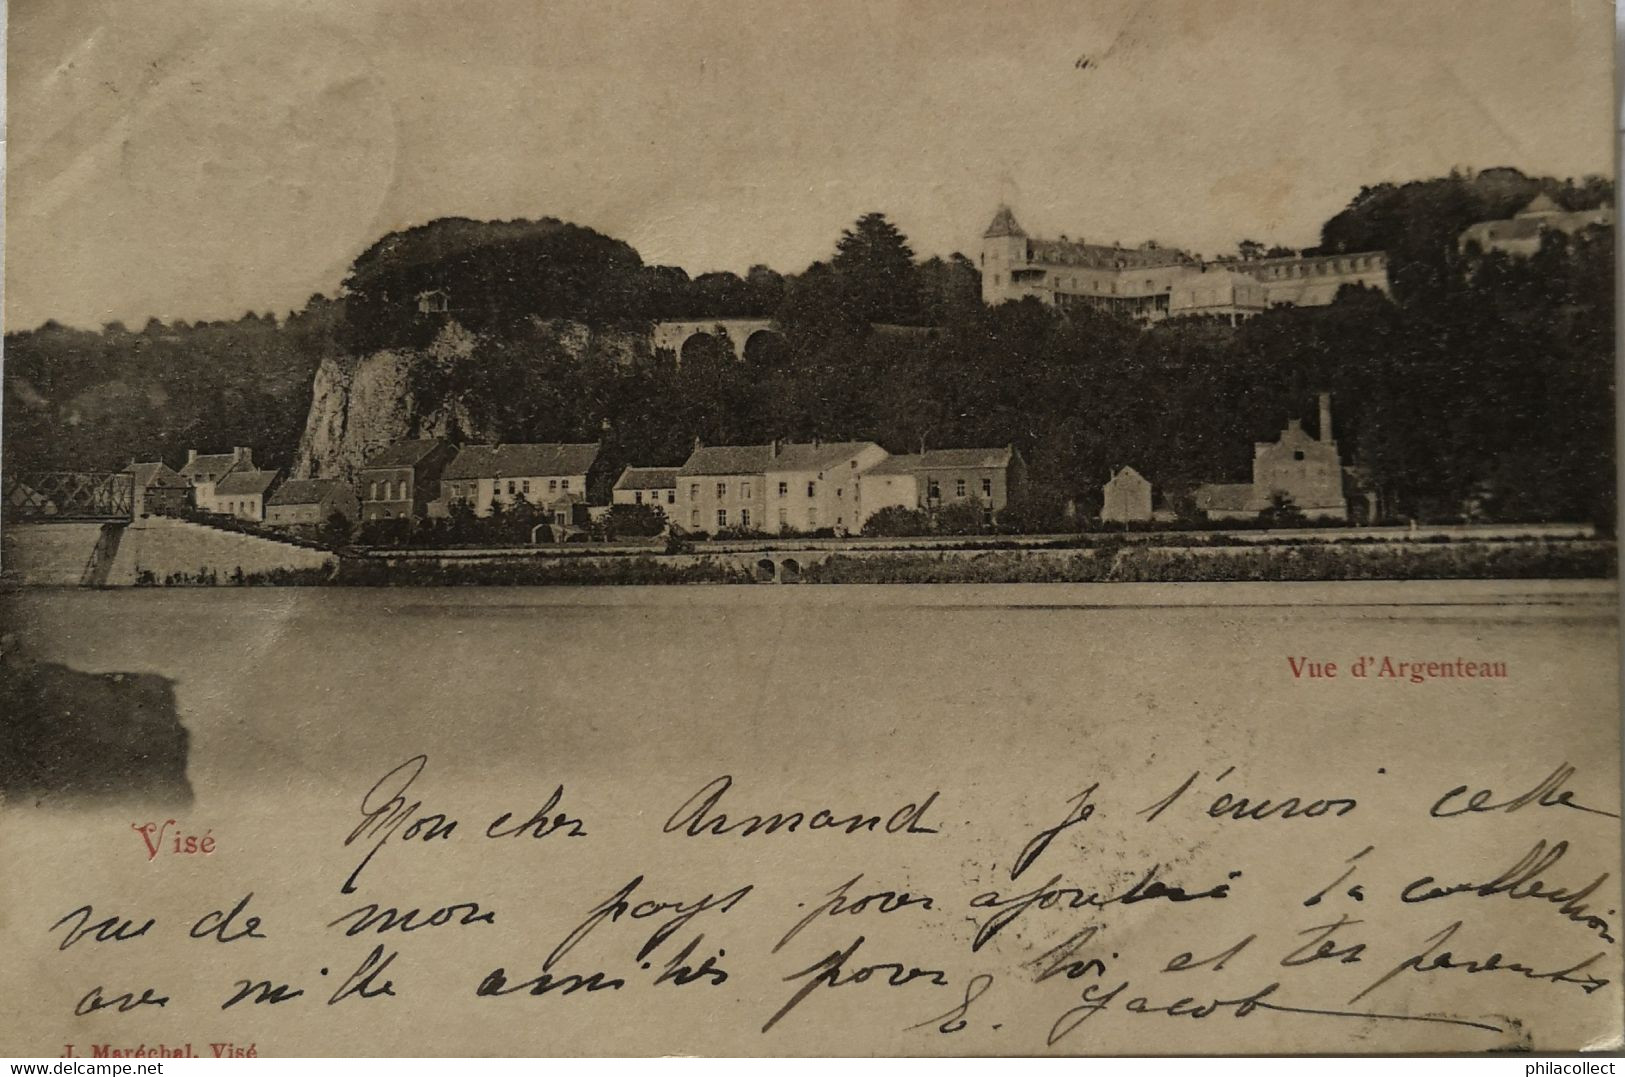 Vue d'Argenteau
Visé
Mon cher Armand je t'envoi cette
vue de mon pays pour ajouter à ta collection
avec mille amitiés pour toi et tes parents
E. Jacob
J. Maréchal, Visé
www.delcampe.net
philacollect